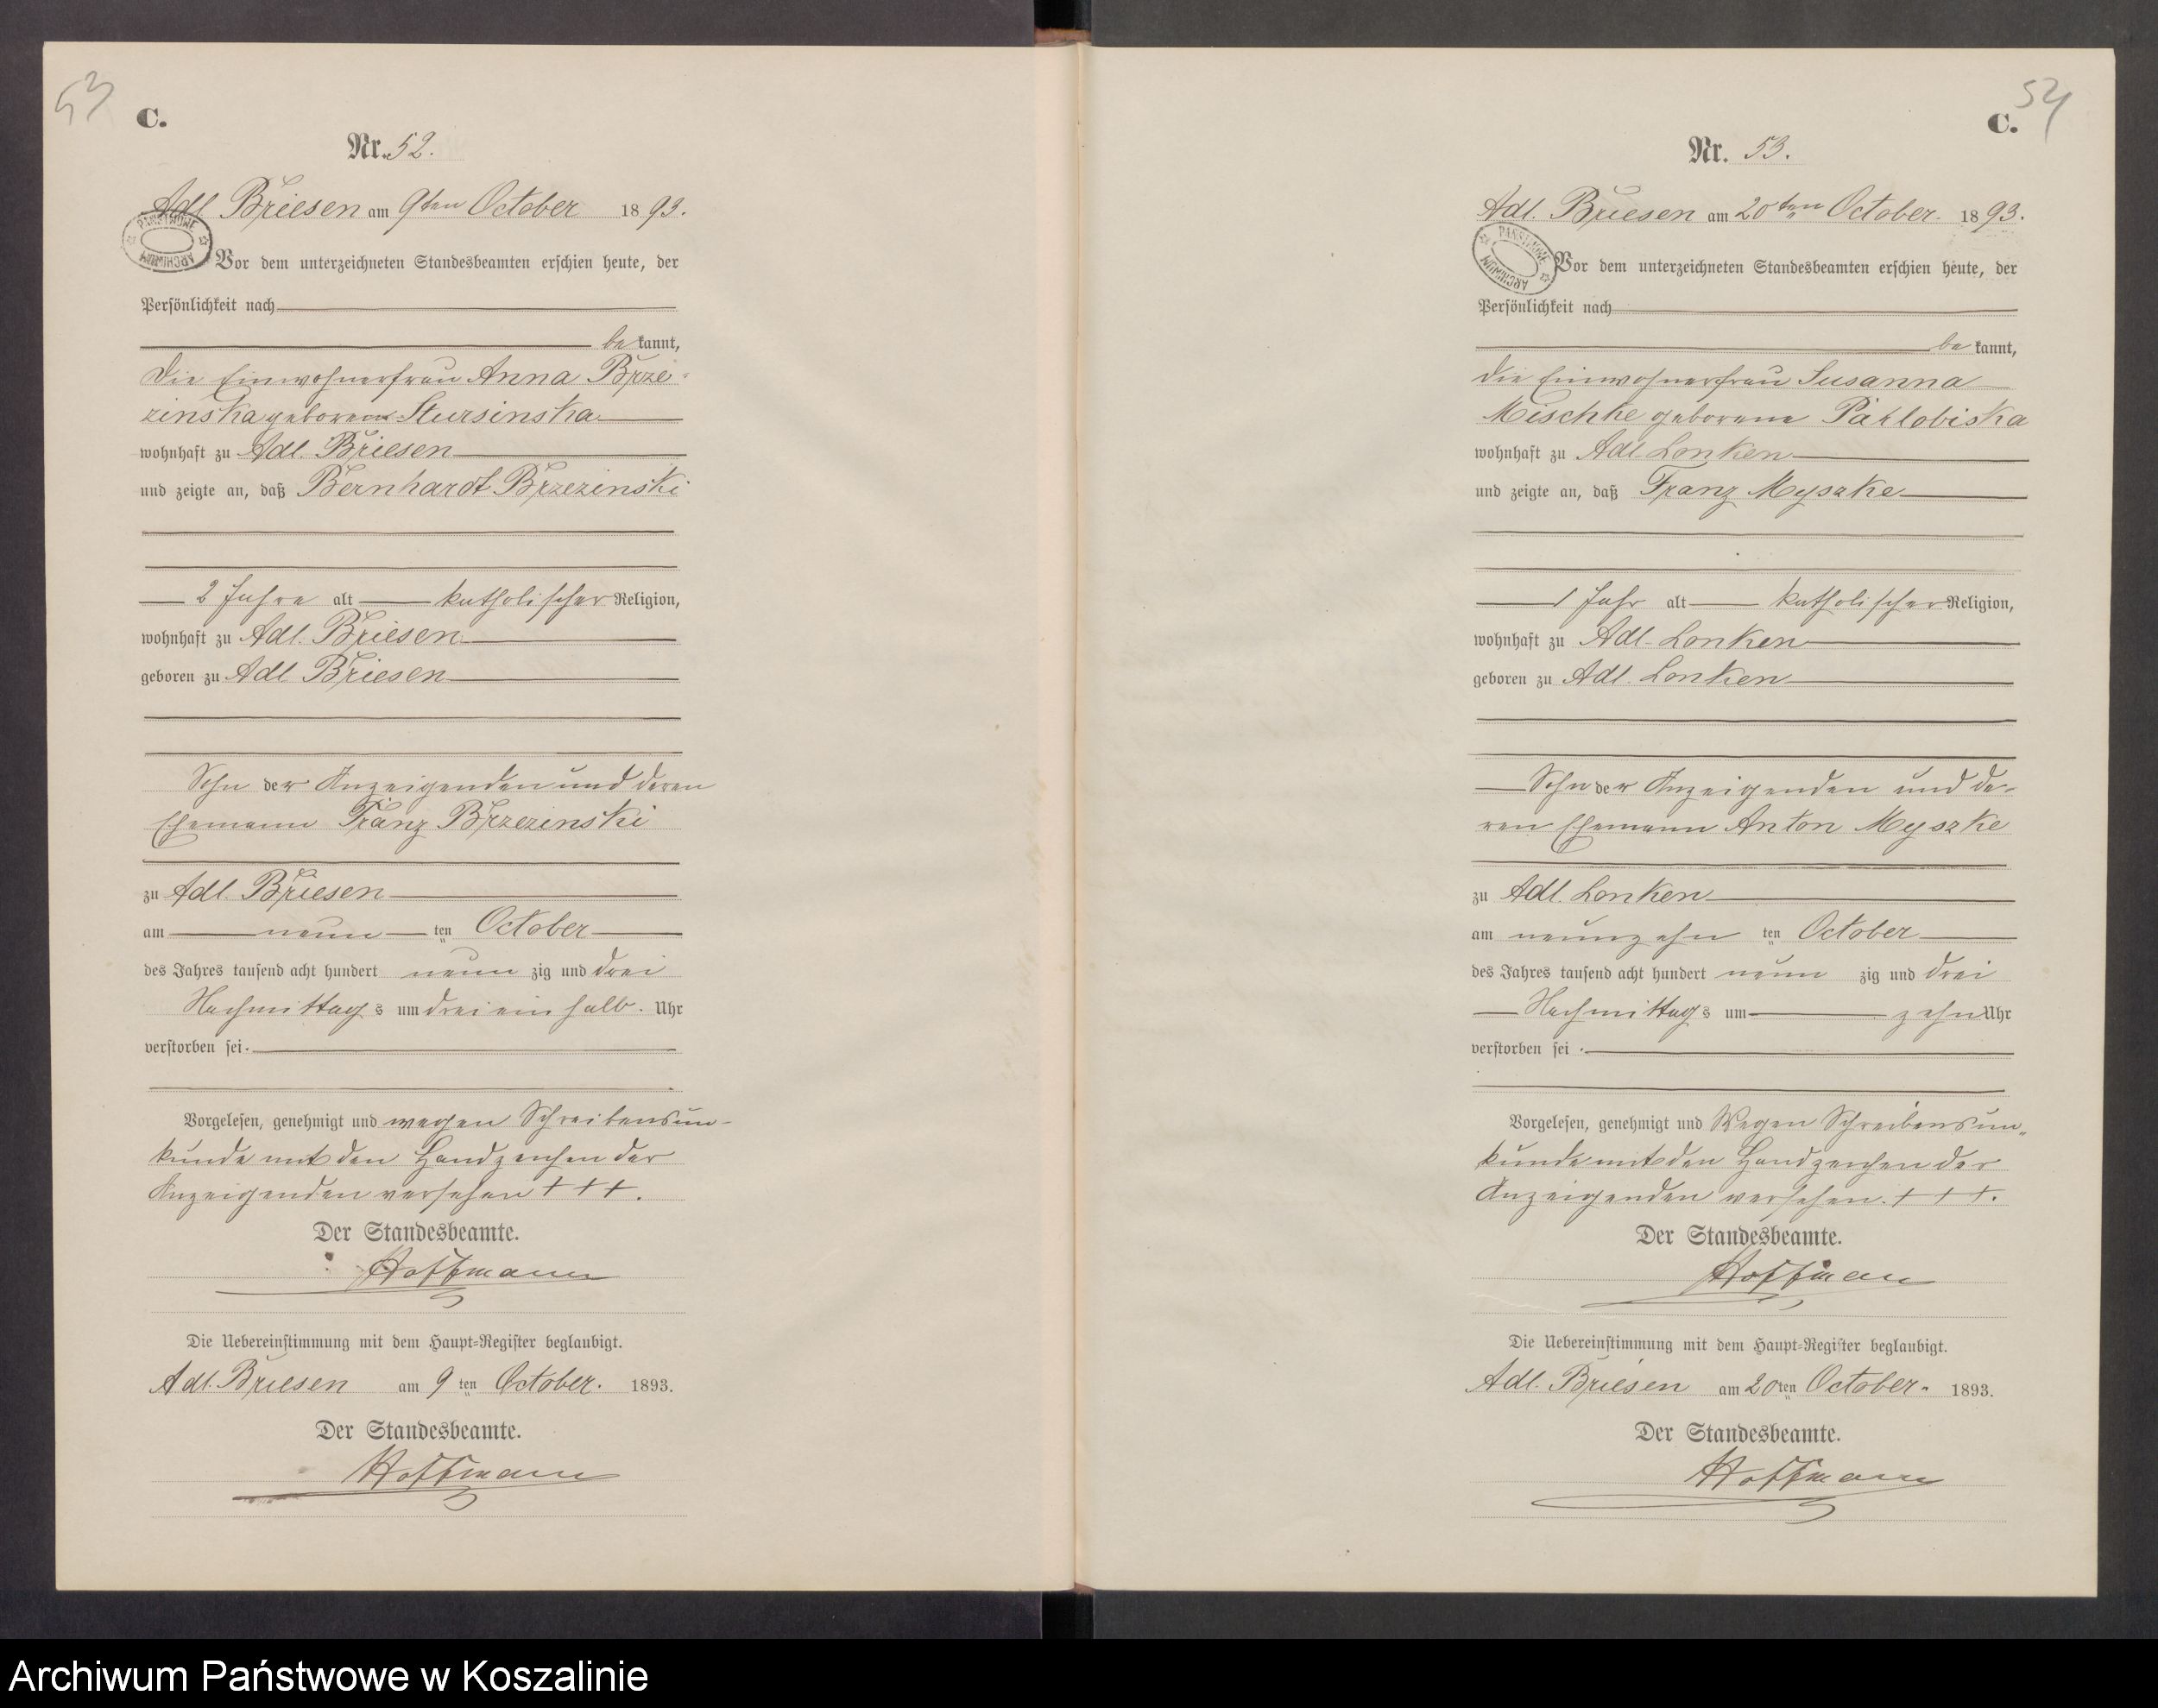 53
C.
Nr. 52.
Adl. Briesen am 9ten October 1893.
PAŃSTWOWE
ARCHIWUM
Vor dem unterzeichneten Standesbeamten erschien heute, der
Persönlichkeit nach
be kannt,
die Einwohnerfrau Anna Brze-
zinska geborene Stursinska
wohnhaft zu Adl. Briesen
und zeigte an, daß Bernhardt Brzezinski
2 Jahre alt katholischer Religion,
wohnhaft zu Adl. Briesen
geboren zu Adl. Briesen
Sohn der Anzeigenden und deren
Ehemann Franz Brzezinski
zu Adl. Briesen
am neun ten October
des Jahres tausend acht hundert neun zig und drei
Nachmittags um drei ein halb. Uhr
verstorben sei.
Vorgelesen, genehmigt und wegen Schreibensun-
kunde mit den Handzeichen der
Anzeigenden versehen + + +.
Der Standesbeamte.
Hoffmann
Die Uebereinstimmung mit dem Haupt-Register beglaubigt.
Adl. Briesen am 9 ten October. 1893.
Der Standesbeamte.
Hoffmann
54
C.
Nr. 53.
Adl. Briesen am 20ten October. 1893.
PAŃSTWOWE
ARCHIWUM
Vor dem unterzeichneten Standesbeamten erschien heute, der
Persönlichkeit nach
be kannt,
die Einwohnerfrau Susanna
Mischke geborene
wohnhaft zu Adl. Lonken
und zeigte an, daß Franz Myszke
1 Jahr alt katholischer Religion,
wohnhaft zu Adl. Lonken
geboren zu Adl. Lonken
Sohn der Anzeigenden und de-
ren Ehemann Anton Myszke
zu Adl. Lonken
am neunzehn ten October
des Jahres tausend acht hundert neun zig und drei
Nachmittags um zehn Uhr
verstorben sei.
Vorgelesen, genehmigt und Wegen Schreibensun-
kunde mit den Handzeichen der
Anzeigenden versehen. + + +.
Der Standesbeamte.
Hoffmann
Die Uebereinstimmung mit dem Haupt-Register beglaubigt.
Adl. Briesen am 20ten October. 1893.
Der Standesbeamte.
Hoffmann
Archiwum Państwowe w Koszalinie